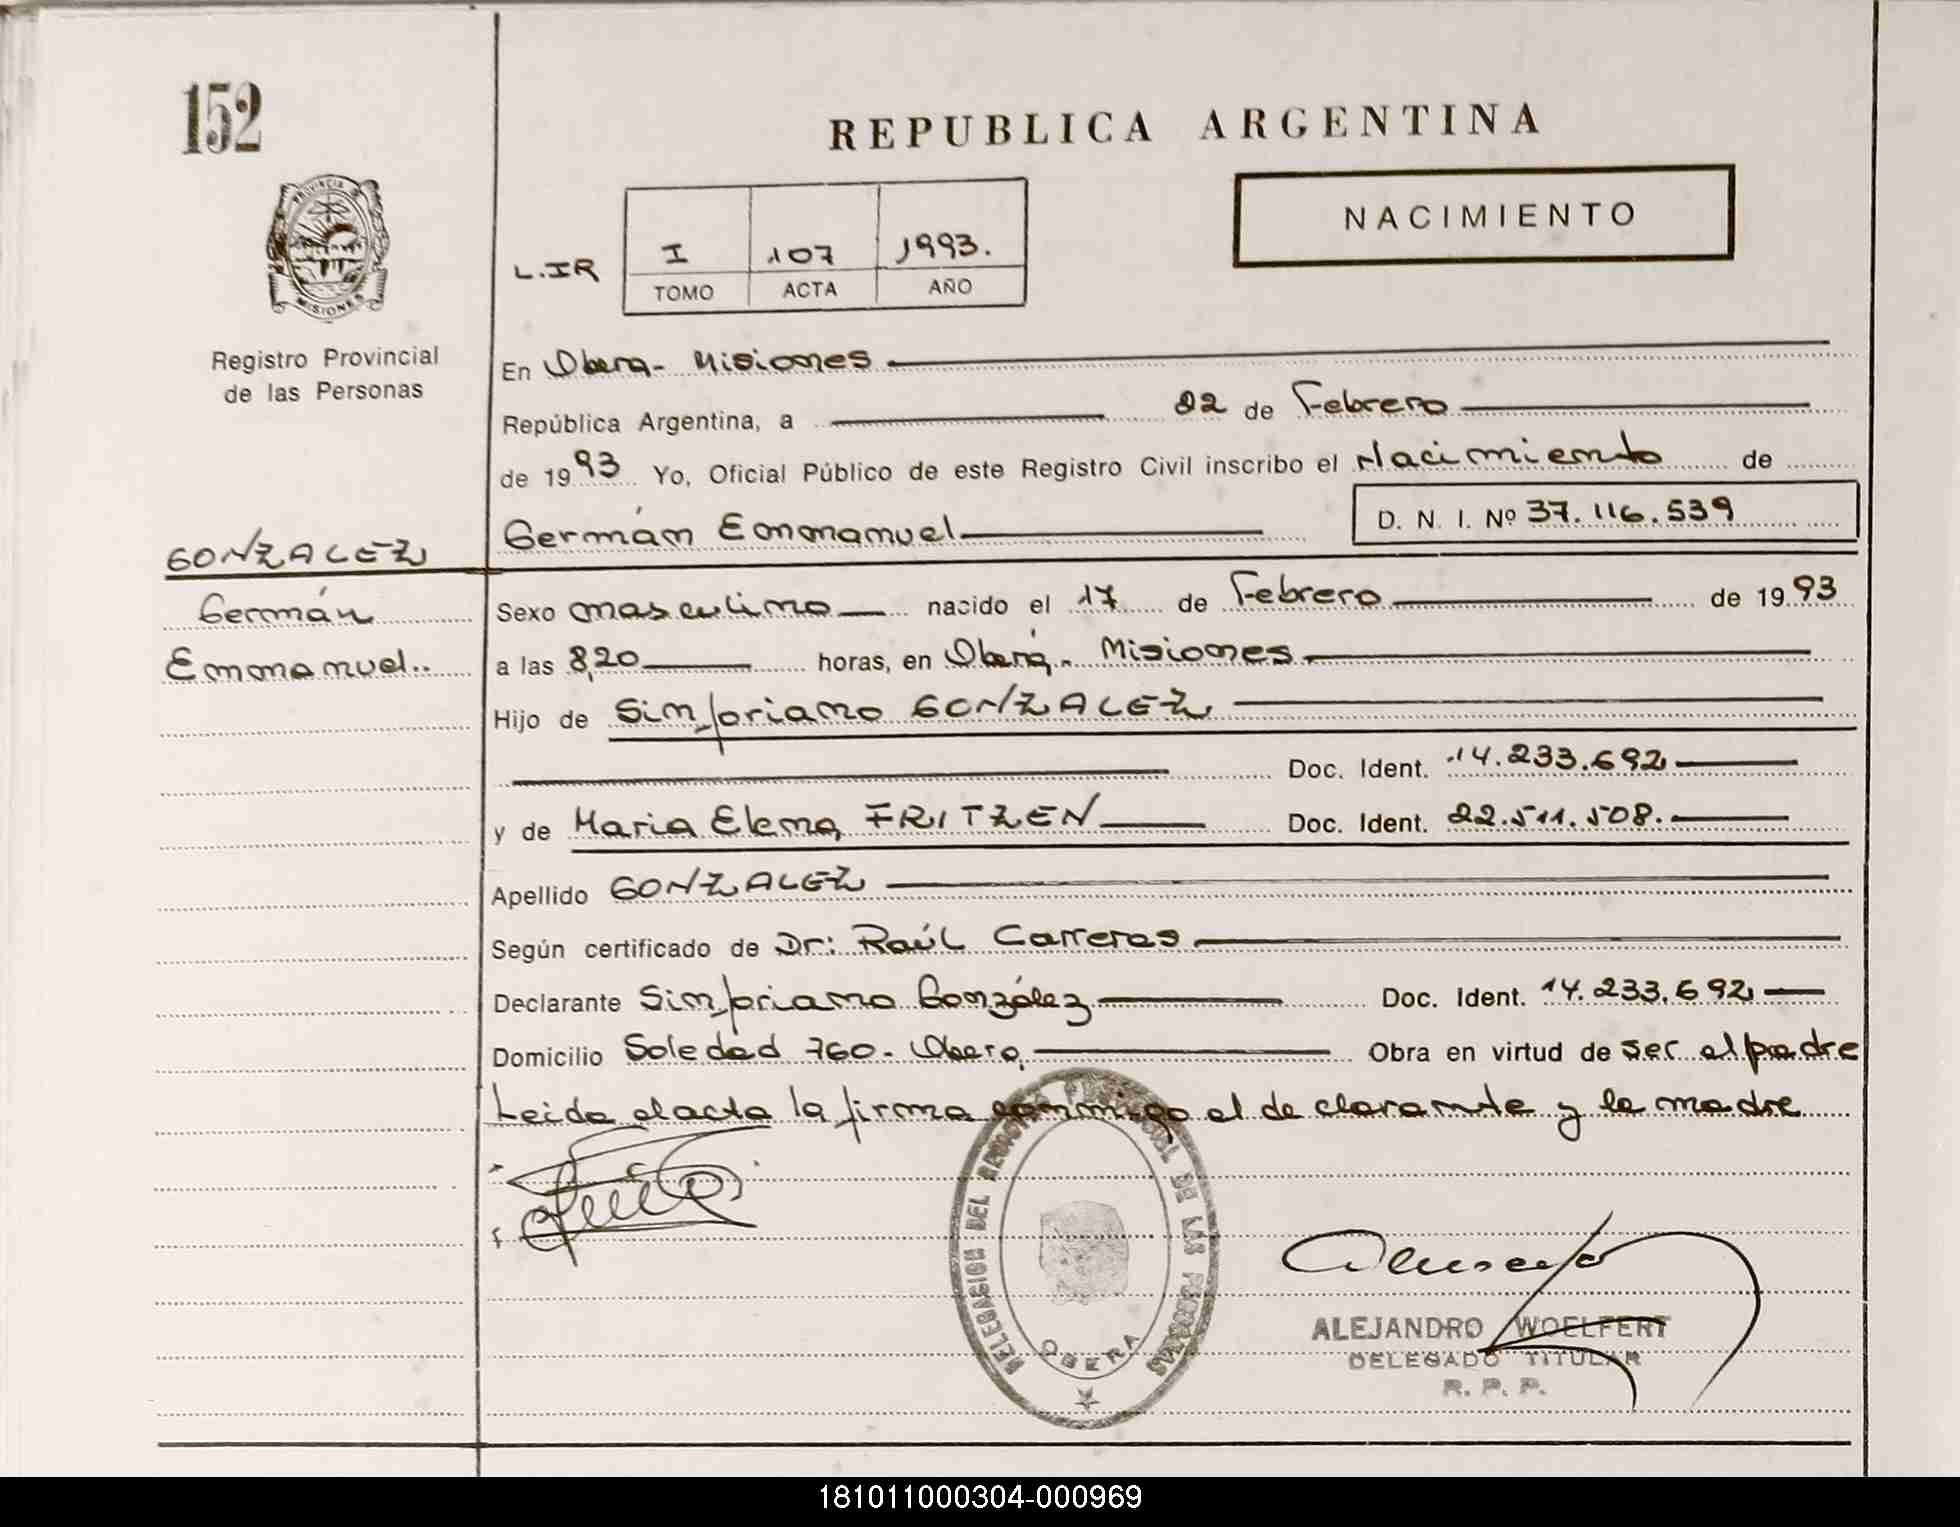 152
REPUBLICA ARGENTINA
PROVINCIA DE
MISIONES
NACIMIENTO
L.IR
I 107 1993.
TOMO ACTA AÑO
Registro Provincial
de las Personas
En Obera - Misiones
República Argentina, a 22 de Febrero
de 1993 Yo, Oficial Público de este Registro Civil inscribo el Nacimiento de
Germán Emmanuel D. N. I. Nº 37.116.539
GONZALEZ
Germán
Emmanuel..
Sexo masculino nacido el 17 de Febrero de 1993
a las 8,20 horas, en Oberá - Misiones
Hijo de Sinforiano GONZALEZ
Doc. Ident. 14.233.692
y de Maria Elena FRITZEN Doc. Ident. 22.511.508.
Apellido GONZALEZ
Según certificado de Dr: Raúl Carreras
Declarante Sinforiano González Doc. Ident. 14.233.692
Domicilio Soledad 760 - Obera Obra en virtud de ser el padre
Leida el acta la firma conmigo el declarante y la madre
DELEGASION DEL REGISTRO PROVINCIAL DE LAS PERSONAS
OBERA
ALEJANDRO WOELFERT
DELEGADO TITULAR
R. P. P.
181011000304-000969